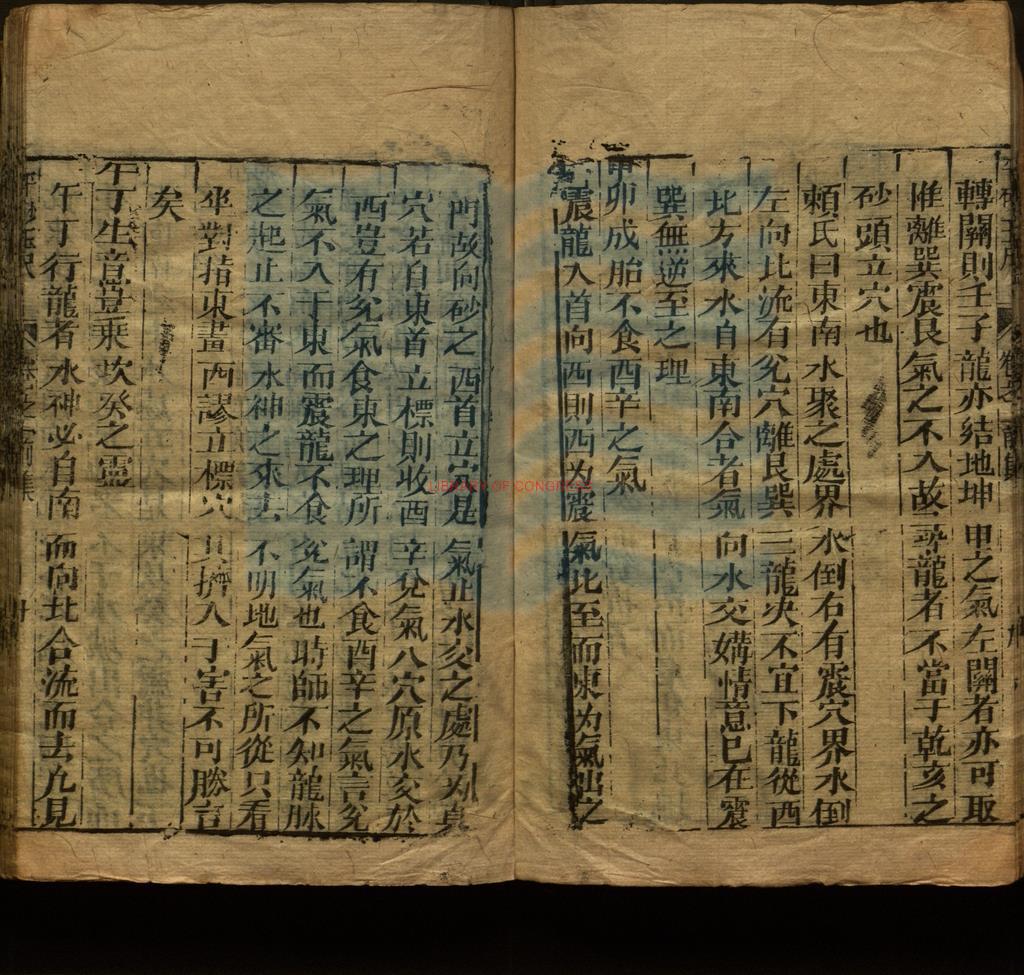 轉關則壬子龍亦結地坤申之氣左關者亦可取
惟離巽震艮氣之不入故尋龍者不當于乾亥之
砂頭立穴也
賴氏曰東南水聚之處界水倒右有震穴界水倒
左向北流有兊穴離艮巽三龍决不宜下龍從西
北方來水自東南合者氣向水交媾情意已在震
巽無逆至之理
甲卯成胎不食酉辛之氣
震龍入首向西則西为震氣比至而東为氣出之
門故向砂之西首立穴是氣止水交之處乃为真
穴若自東首立標則收酉辛兊氣八穴原水交於
西豈有兊氣食東之理所謂不食酉辛之氣言兊
氣不入于東而震龍不食兊氣也時師不知龍脉
之起止不審水神之來去不明地氣之所從只看
坐對指東畫西謬立標穴擠人于害不可勝言
矣
午丁生意豈乗坎癸之靈
午丁行龍者水神必自南而向北合流而去凢見
LIBRARY OF CONGRESS